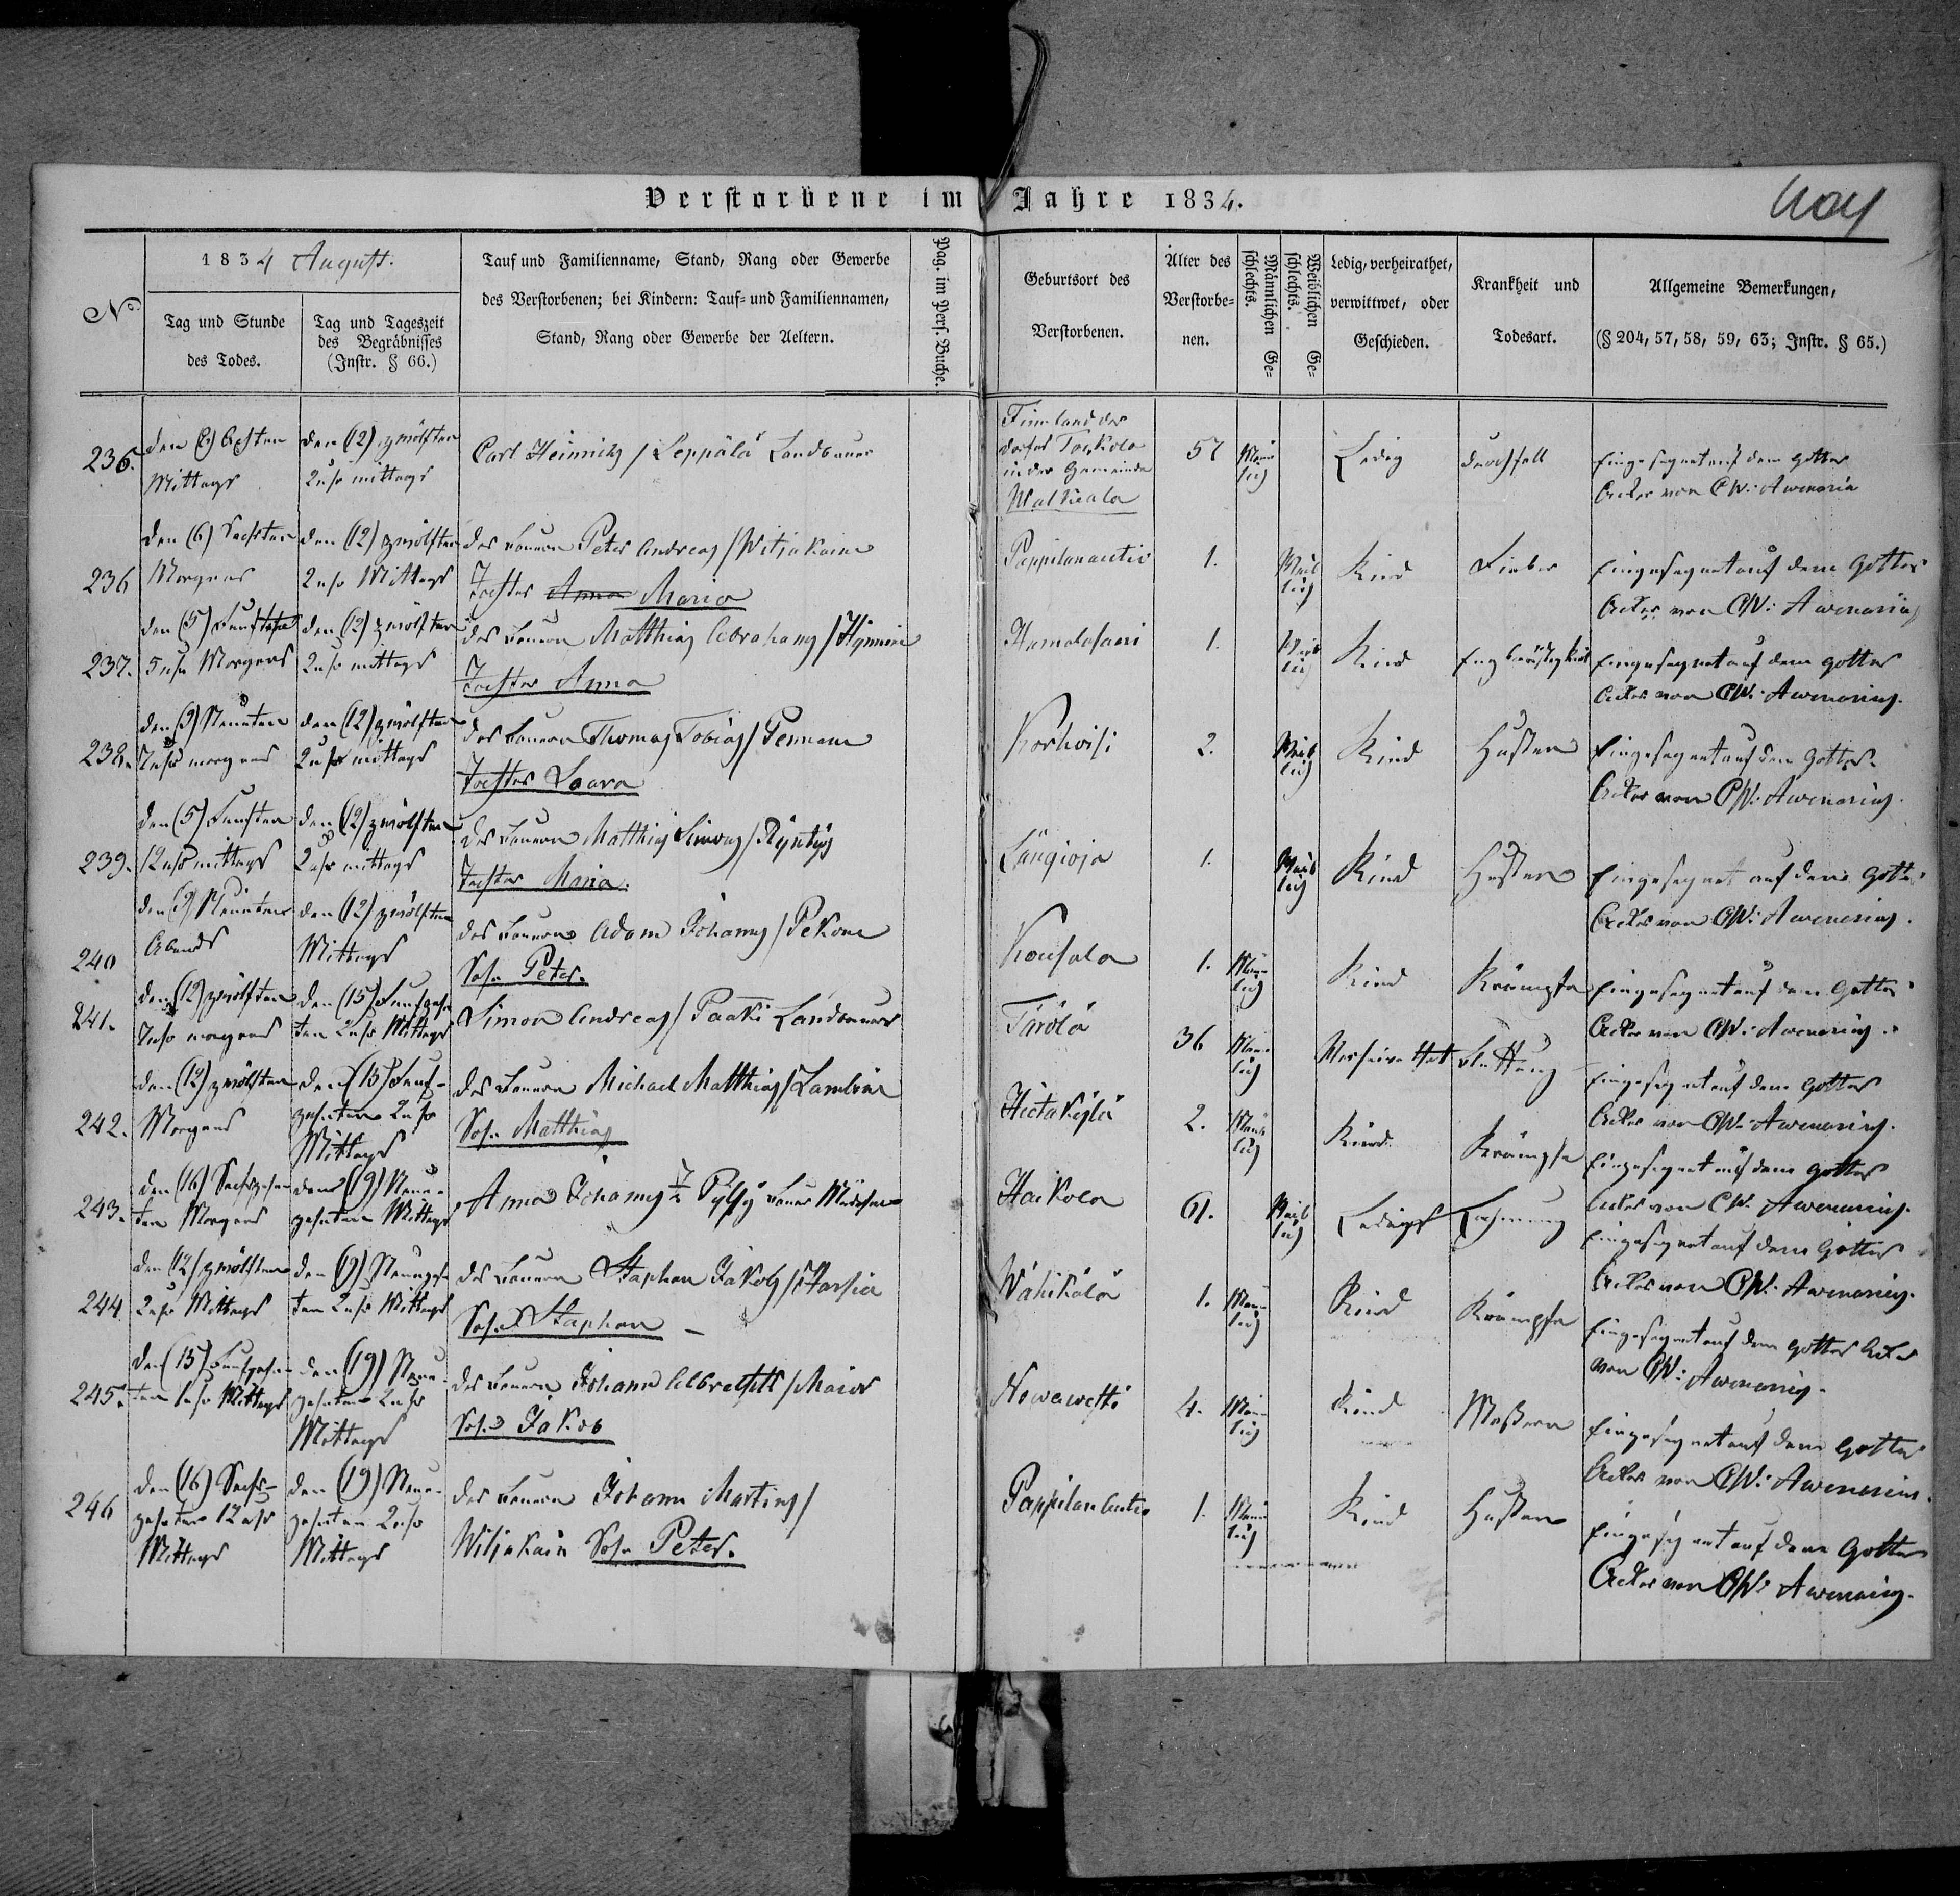 Verstorbene im Jahre 1834.
No
1834 August.
Tag und Stunde
des Todes.
Tag und Tageszeit
des Begräbnisses
(Instr. § 66.)
Tauf und Familienname, Stand, Rang oder Gewerbe
des Verstorbenen; bei Kindern: Tauf- und Familiennamen,
Stand, Rang oder Gewerbe der Aeltern.
Pag. im Pers. Buche.
Geburtsort des
Verstorbenen.
Alter des
Verstorbe-
nen.
Männlichen Ge-
schlechts.
Weiblichen Ge-
schlechts.
Ledig, verheirathet,
verwittwet, oder
Geschieden.
Krankheit und
Todesart.
Allgemeine Bemerkungen,
(§ 204, 57, 58, 59, 63; Instr. § 65.)
236.
den
Mittags
den (12) zwölften
2 uhr mittags
Carl Heinrichs / Leppälä Landbauer
Finnland des
dorfes
in der Gemeinde
Walkiala
57
Män
lich
Ledig
durchfall
Eingesegnet auf dem Gottes
Acker von CW: Awenariu
236
den (6) Sechsten
Morgens
den (12) zwölften
2 uhr Mittags
des bauern Peter Andreas / Witjakaine
Tochter Anna Maria
1.
Weib
lich
Kind
Fieber
Eingesegnet auf dem Gottes
Acker von CW: Awenarius
237.
den (5) Funften
5 uhr Morgens
den (12) zwölften
2 uhr mittags
des bauern Matthias Abrahams / Hÿnnine
Tochter Anna
1.
Weib
lich
Kind
Engbrüstigkeit
Eingesegnet auf dem Gottes
Acker von CW: Awenarius.
238.
den (9) Neunten
7 uhr morgens
den (12) zwölften
2 uhr mittags
des bauern Thomas Tobias / Pennane
Tochter Laara
Korkoisi
2.
Weib
lich
Kind
Husten
Eingesegnet auf dem Gottes
Acker von CW: Awenarius.
239.
den (5) Funften
12 uhr mittags
den (12) zwölften
2 uhr mittags
des bauern Matthias Simons / Rÿntÿs
Tochter Maria.
Längioja
1.
Weib
lich
Kind
Husten
Eingesegnet auf dem Gottes
Acker von CW: Awenarius.
240
den (9) Neunten
Abends
den (12) zwölften
Mittags
des bauern Adam Johanns / Pekone
Sohn Peter.
1.
Män-
lich
Kind
Krämpfe
Eingesegnet auf dem Gottes
Acker von CW: Awenarius.
241.
den (12) zwölften
7 uhr morgens
den (15) Funfzehn
ten 2 uhr Mittags
Simon Andreas / Paaki Landbauer
36
Män-
lich
Verheirathet
Eingesegnet auf dem Gottes
Acker von CW: Awenarius.
242.
den (12) zwölften
Morgens
den (15) Funf-
zehnten 2 uhr
Mittags
des bauern Michael Matthias / Lambine
Sohn Matthias
Hietakÿlä
2.
Män
lich
Kind
Krämpfe
Eingesegnet auf dem Gottes
Acker von CW: Awenarius.
243.
den (16) Sechszehn
ten Morgens
den (19) Neun-
zehnten Mittags
Anna Johanns
Haikola
61.
Weib
lich
Eingesegnet auf dem Gottes
Acker von CW: Awenarius.
244
den (12) zwölften
2 uhr Mittags
den (19) Neunzehn
ten 2 uhr Mittags
des bauern Staphan Jakobs / Harsia
Sohn Staphan
Wähikälä
1.
Män-
lich
Kind
Krämpfe
Eingesegnet auf dem Gottes Acker
von CW: Awenarius.
245.
den (15) Funfzehn
ten 1 uhr Mittags
den (19) Neun-
zehnten 2 uhr
Mittags
des bauern Johann Albrechts /
Sohn Jakob
4.
Män-
lich
Kind
Maßern
Eingesegnet auf dem Gottes
Acker von CW: Awenarius.
246
den (16) Sechs-
zehnten 12 uhr
Mittags
den (19) Neun-
zehnten 2 uhr
Mittags
des bauern Johann Martins /
Witjakain Sohn Peter.
1.
Män
lich
Kind
Husten
Eingesegnet auf dem Gottes
Acker von CW: Awenarius.